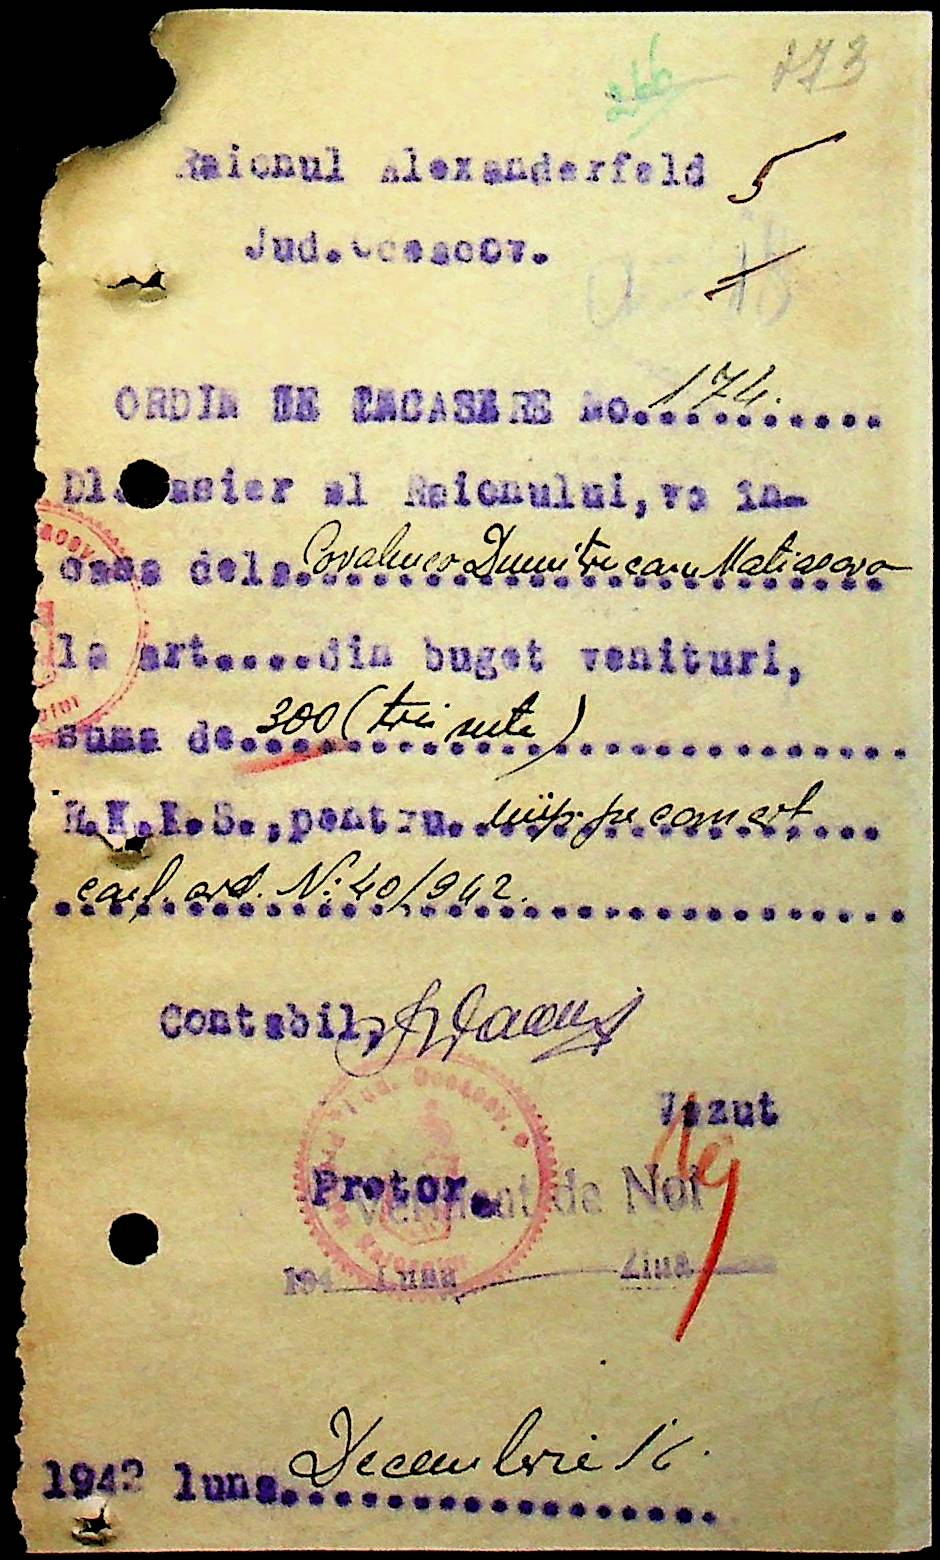 266
173
Raionul Alexanderfeld 5
Jud. Oceacov.
ORDIN DE INCASARE No. 174.
Dl. Casier al Raionului, va in-
casa dela Dumitru com
la art.....din buget venituri,
suma de 300 (trei sute)
R.K.K.S., pentru imp. pe comert
conf. ord. N: 40/942.
Contabil,
Vazut
Pretor.
de Noi
194 Luna Ziua
1942 luna Decembrie 16.